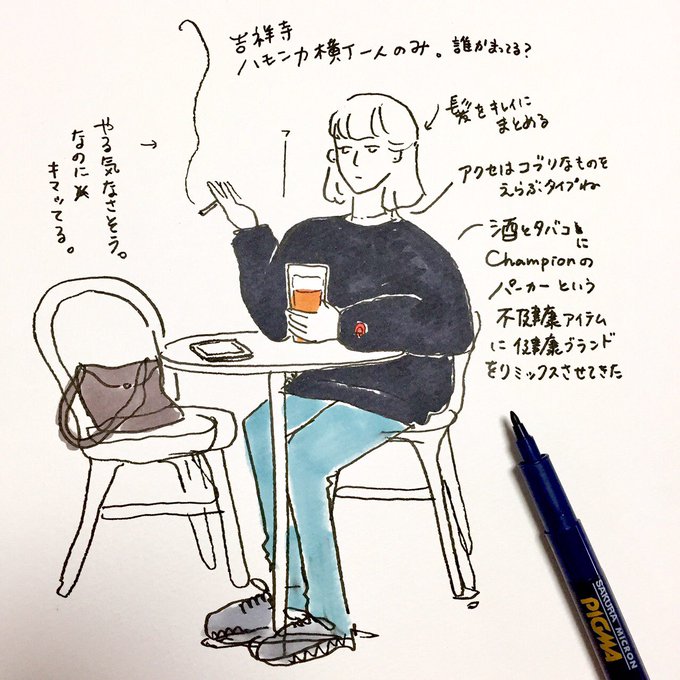 吉祥寺
ハモニカ横丁一人のみ。誰かまってる?
髪をキレイに
まとめる
アクセはコブリなものを
えらぶタイプね
酒とタバコに
Championの
パーカーという
不健康アイテム
に健康ブランド
をリミックスさせてきた
やる気なさそう。
なのに
キマッてる。
SAKURA MICRON
PIGMA